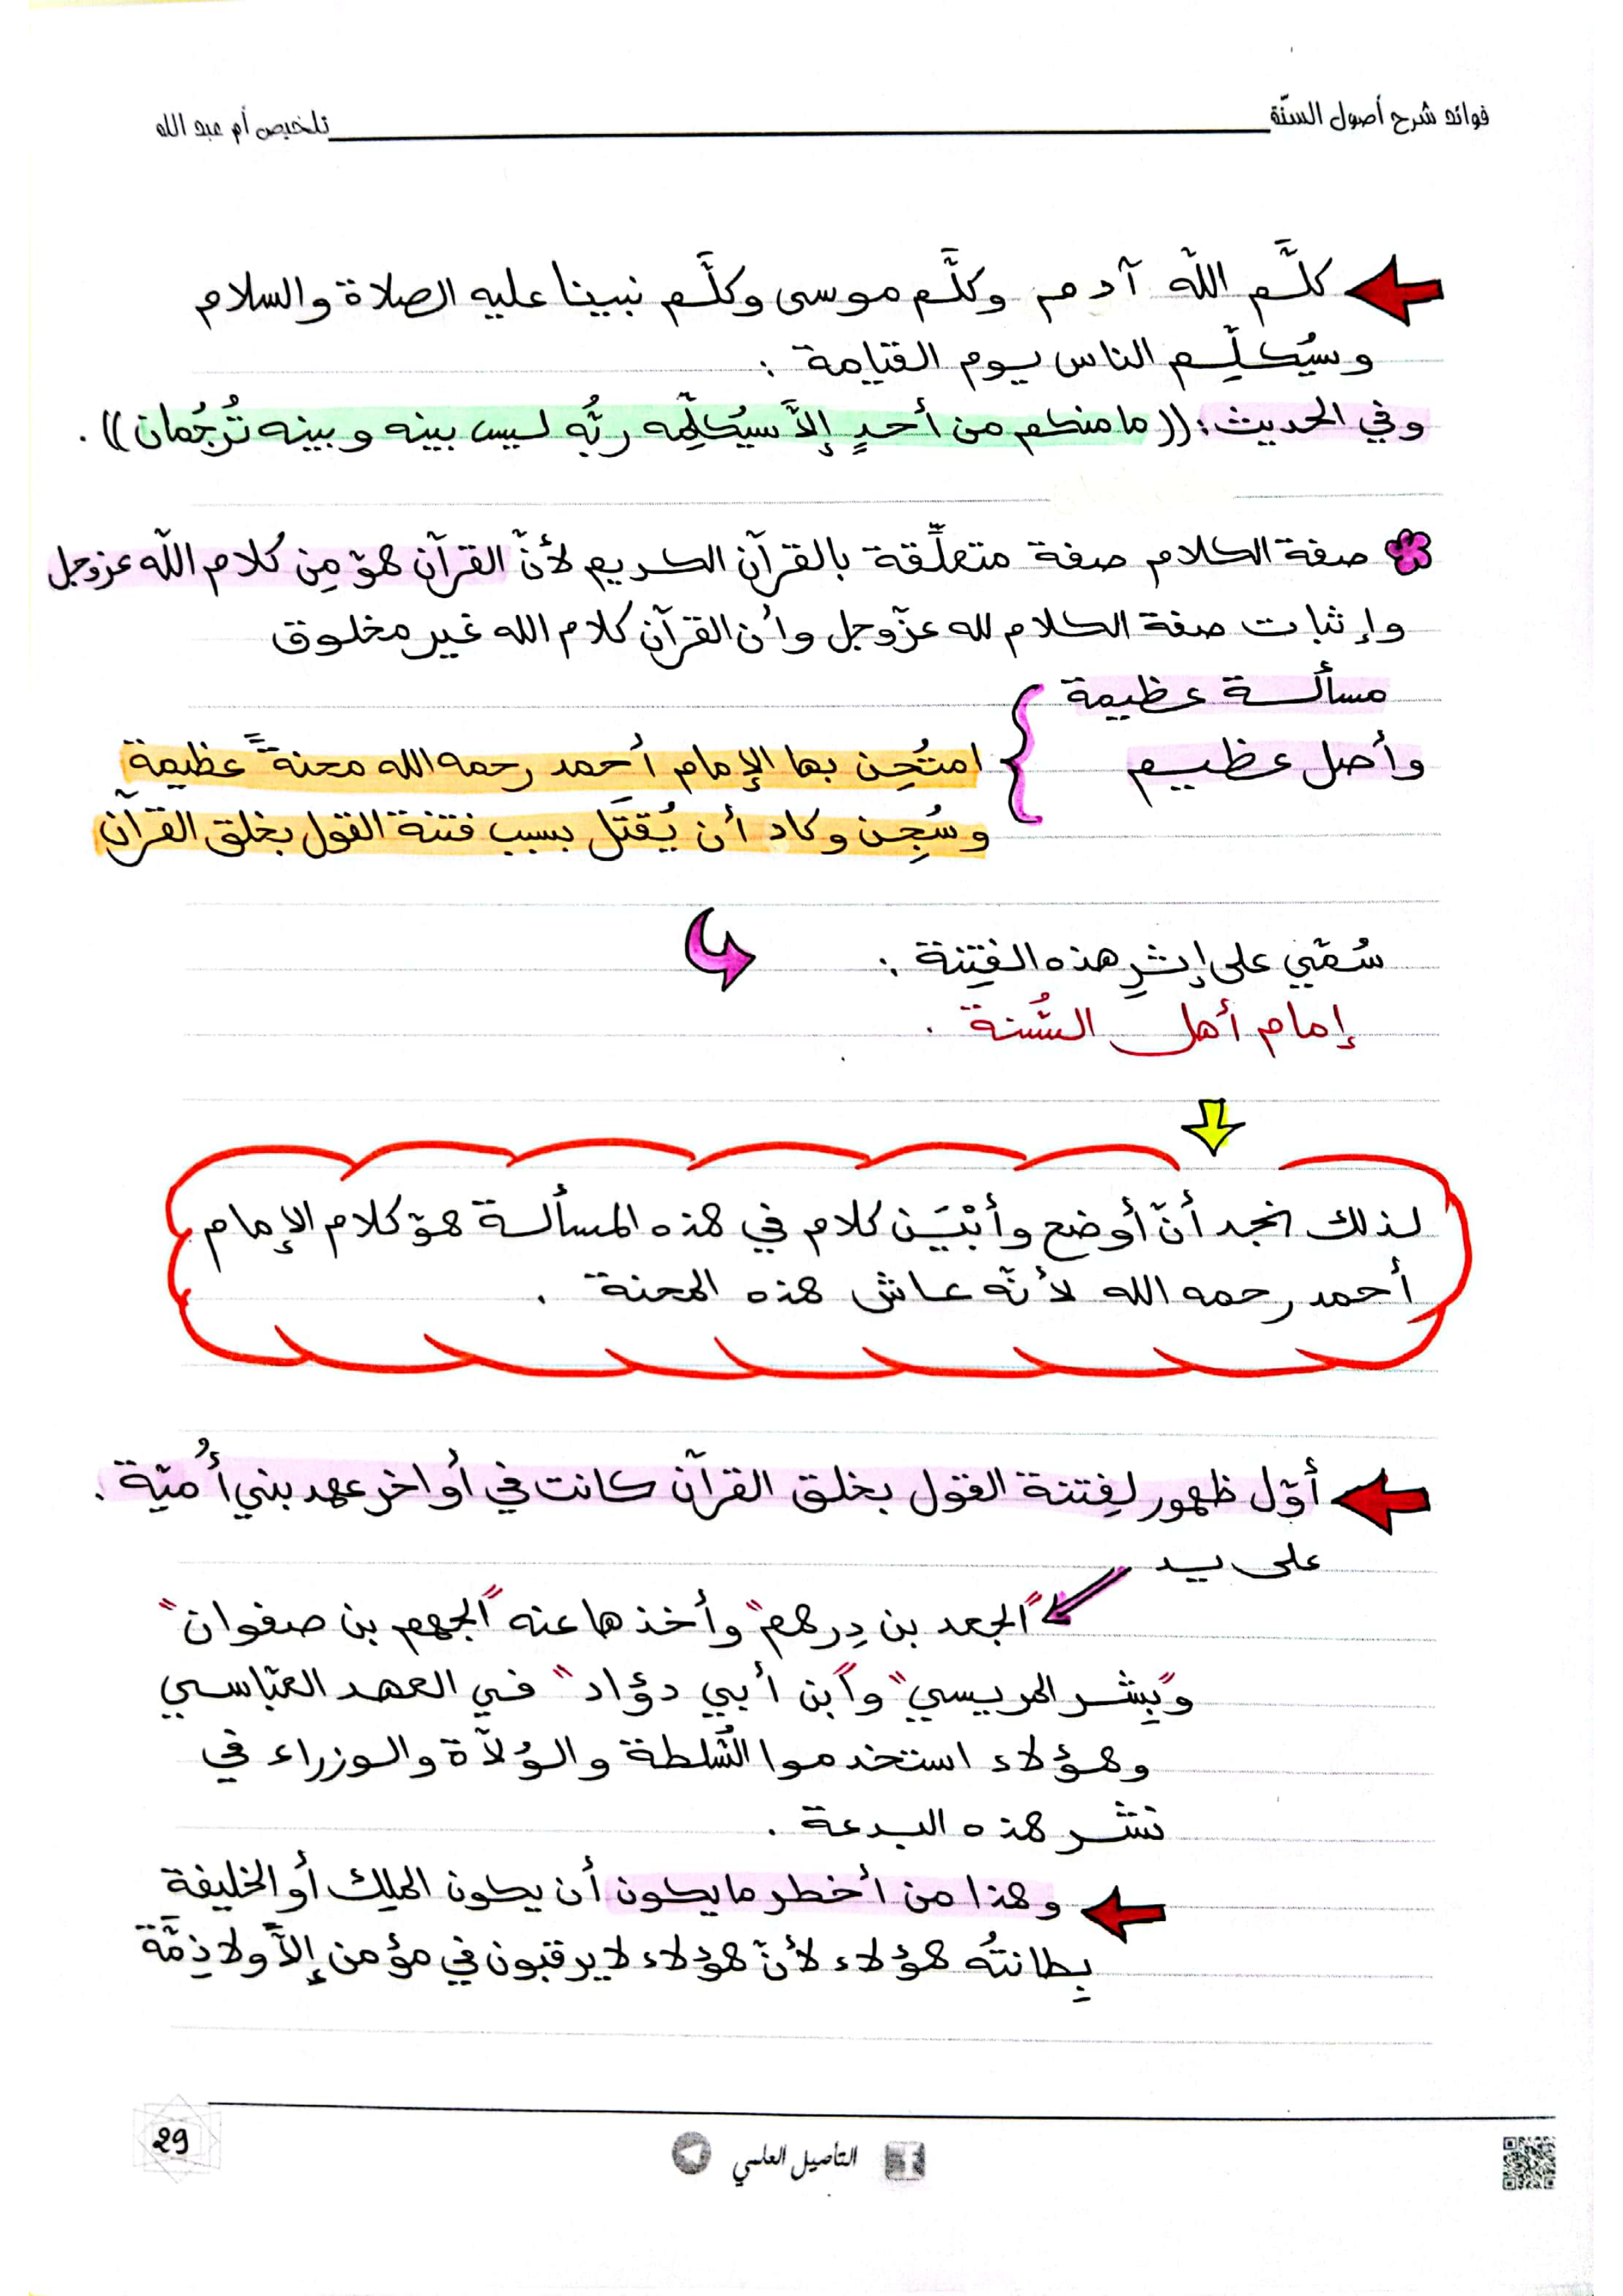 فوائد شرح أصول السنّة
تلخيص أم عبد الله
كلَّم اللّه آدم وكلَّم موسى وكلَّم نبينا عليه الصلاة والسلام
وسيُكلِّم الناس يوم القيامة :
وفي الحديث : ((ما منكم من أحدٍ إلاَّ سيُكلِّمه ربُّه ليس بينه وبينه تُرجُمان)) .
صفة الكلام صفة متعلِّقة بالقرآن الكريم لأنّ القرآن هو مِن كلام اللّه عزوجل
وإثبات صفة الكلام لله عزّوجل وأن القرآن كلام الله غير مخلوق
مسألة عظيمة
وأصل عظيم
امتُحِن بها الإمام أحمد رحمه الله محنةً عظيمة
وسُجِن وكاد أن يُقتَل بسبب فتنة القول بخلق القرآن
سُمّي على إثرِ هذه الفِتنة :
إمام أهل السُّنة .
لذلك نجد أنّ أوضح وأبْيَن كلام في هذه المسألة هو كلام الإمام
أحمد رحمه الله لأنّه عاش هذه المحنة .
أوّل ظهور لفِتنة القول بخلق القرآن كانت في أواخر عهد بني أُميّة .
على يد
"الجعد بن دِرهم" وأخذها عنه "الجهم بن صفوان"
و"بِشر المريسي" و"ابن أبي دؤاد" في العهد العبّاسي
وهؤلاء استخدموا السُّلطة والوُلاّة والوزراء في
نشر هذه البدعة .
وهذا من أخطر ما يكون أن يكون الملِك أو الخليفة
بِطانتُه هؤلاء لأنّ هؤلاء لا يرقبون في مؤمن إلاًّ ولا ذِمَّةً
29
التأصيل العلمي